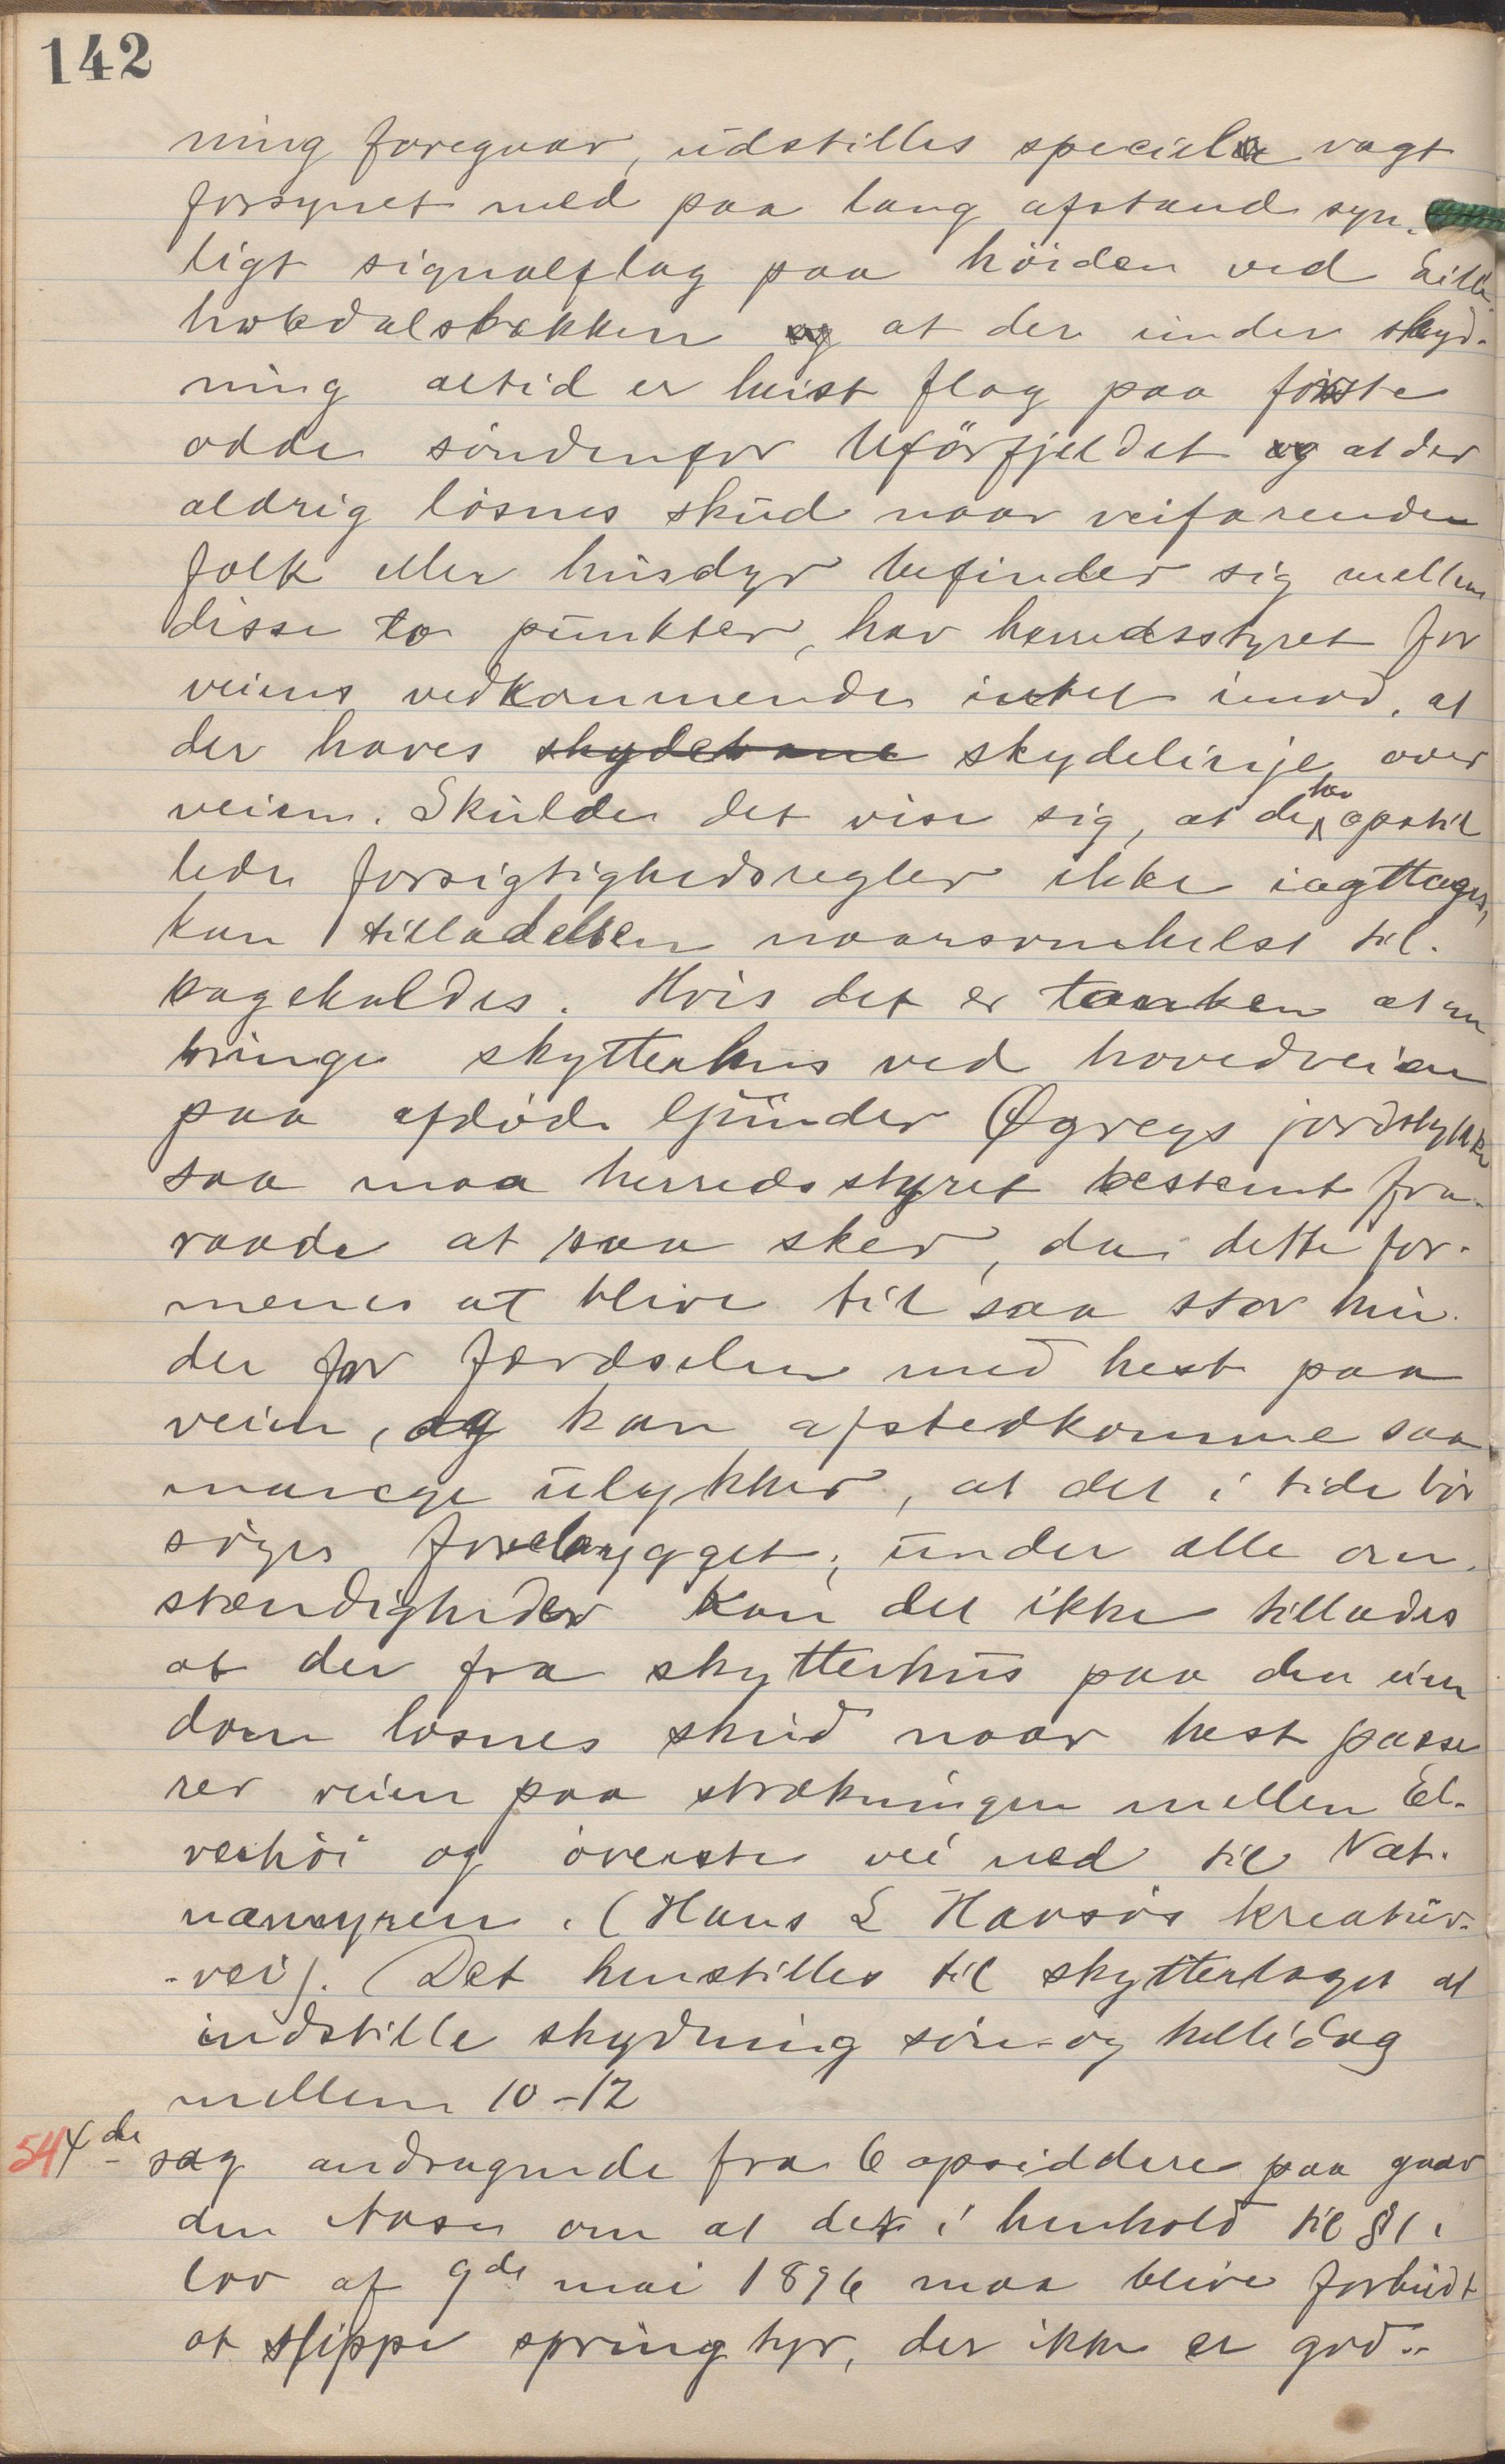 142
ning foregaar, udstilles speciel vagt
forsynet med paa lang afstand syn-
ligt signalflag paa höiden ved Lille
hakedalsbakken og at der under skyd-
ning altid er heist flag paa første
odde söndenfor Uförfjeldet og at der
aldrig lösnes skud naar veifarende
folk eller husdyr befinder sig mellem
disse to punkter, har herredsstyret for
veiens vedkommende intet imod, at
der haves skydebane skydelinje over
veien. Skulde det vise sig, at de her opstil
lede forsigtighedsregler ikke iagttages,
kan tilladelsen naarsomhelst til-
bagekaldes. Hvis det er tanken at an
bringe skytterhus ved hovedveien
paa afdöde Gunder Øgreys jordstykke
saa maa herredsstyret bestemt fra-
raade at saa sker, da dette for-
menes at blive til saa stor hin-
der for færdselen med hest paa
veien, og kan afstedkomme saa
mange ulykker, at det i tide bör
söges forebygget; under alle om-
stændigheder kan det ikke tillades
at der fra skytterhus paa den eien
dom losnes skud naar hest passe
rer veien paa strækningen mellem El-
vehöi og överste vei ned til Nat-
namyren. (Hans L Havsös kreatur-
-vei). Det henstilles til skytterlaget at
indstille skydning sön- og helligdag
mellem 10-12
54 4de sag andragende fra 6 opsiddere paa gaar
den Aase om at det i henhold til § 1 i
lov af 9de mai 1896 maa blive forbudt
at slippe springtyr, der ikke er god-